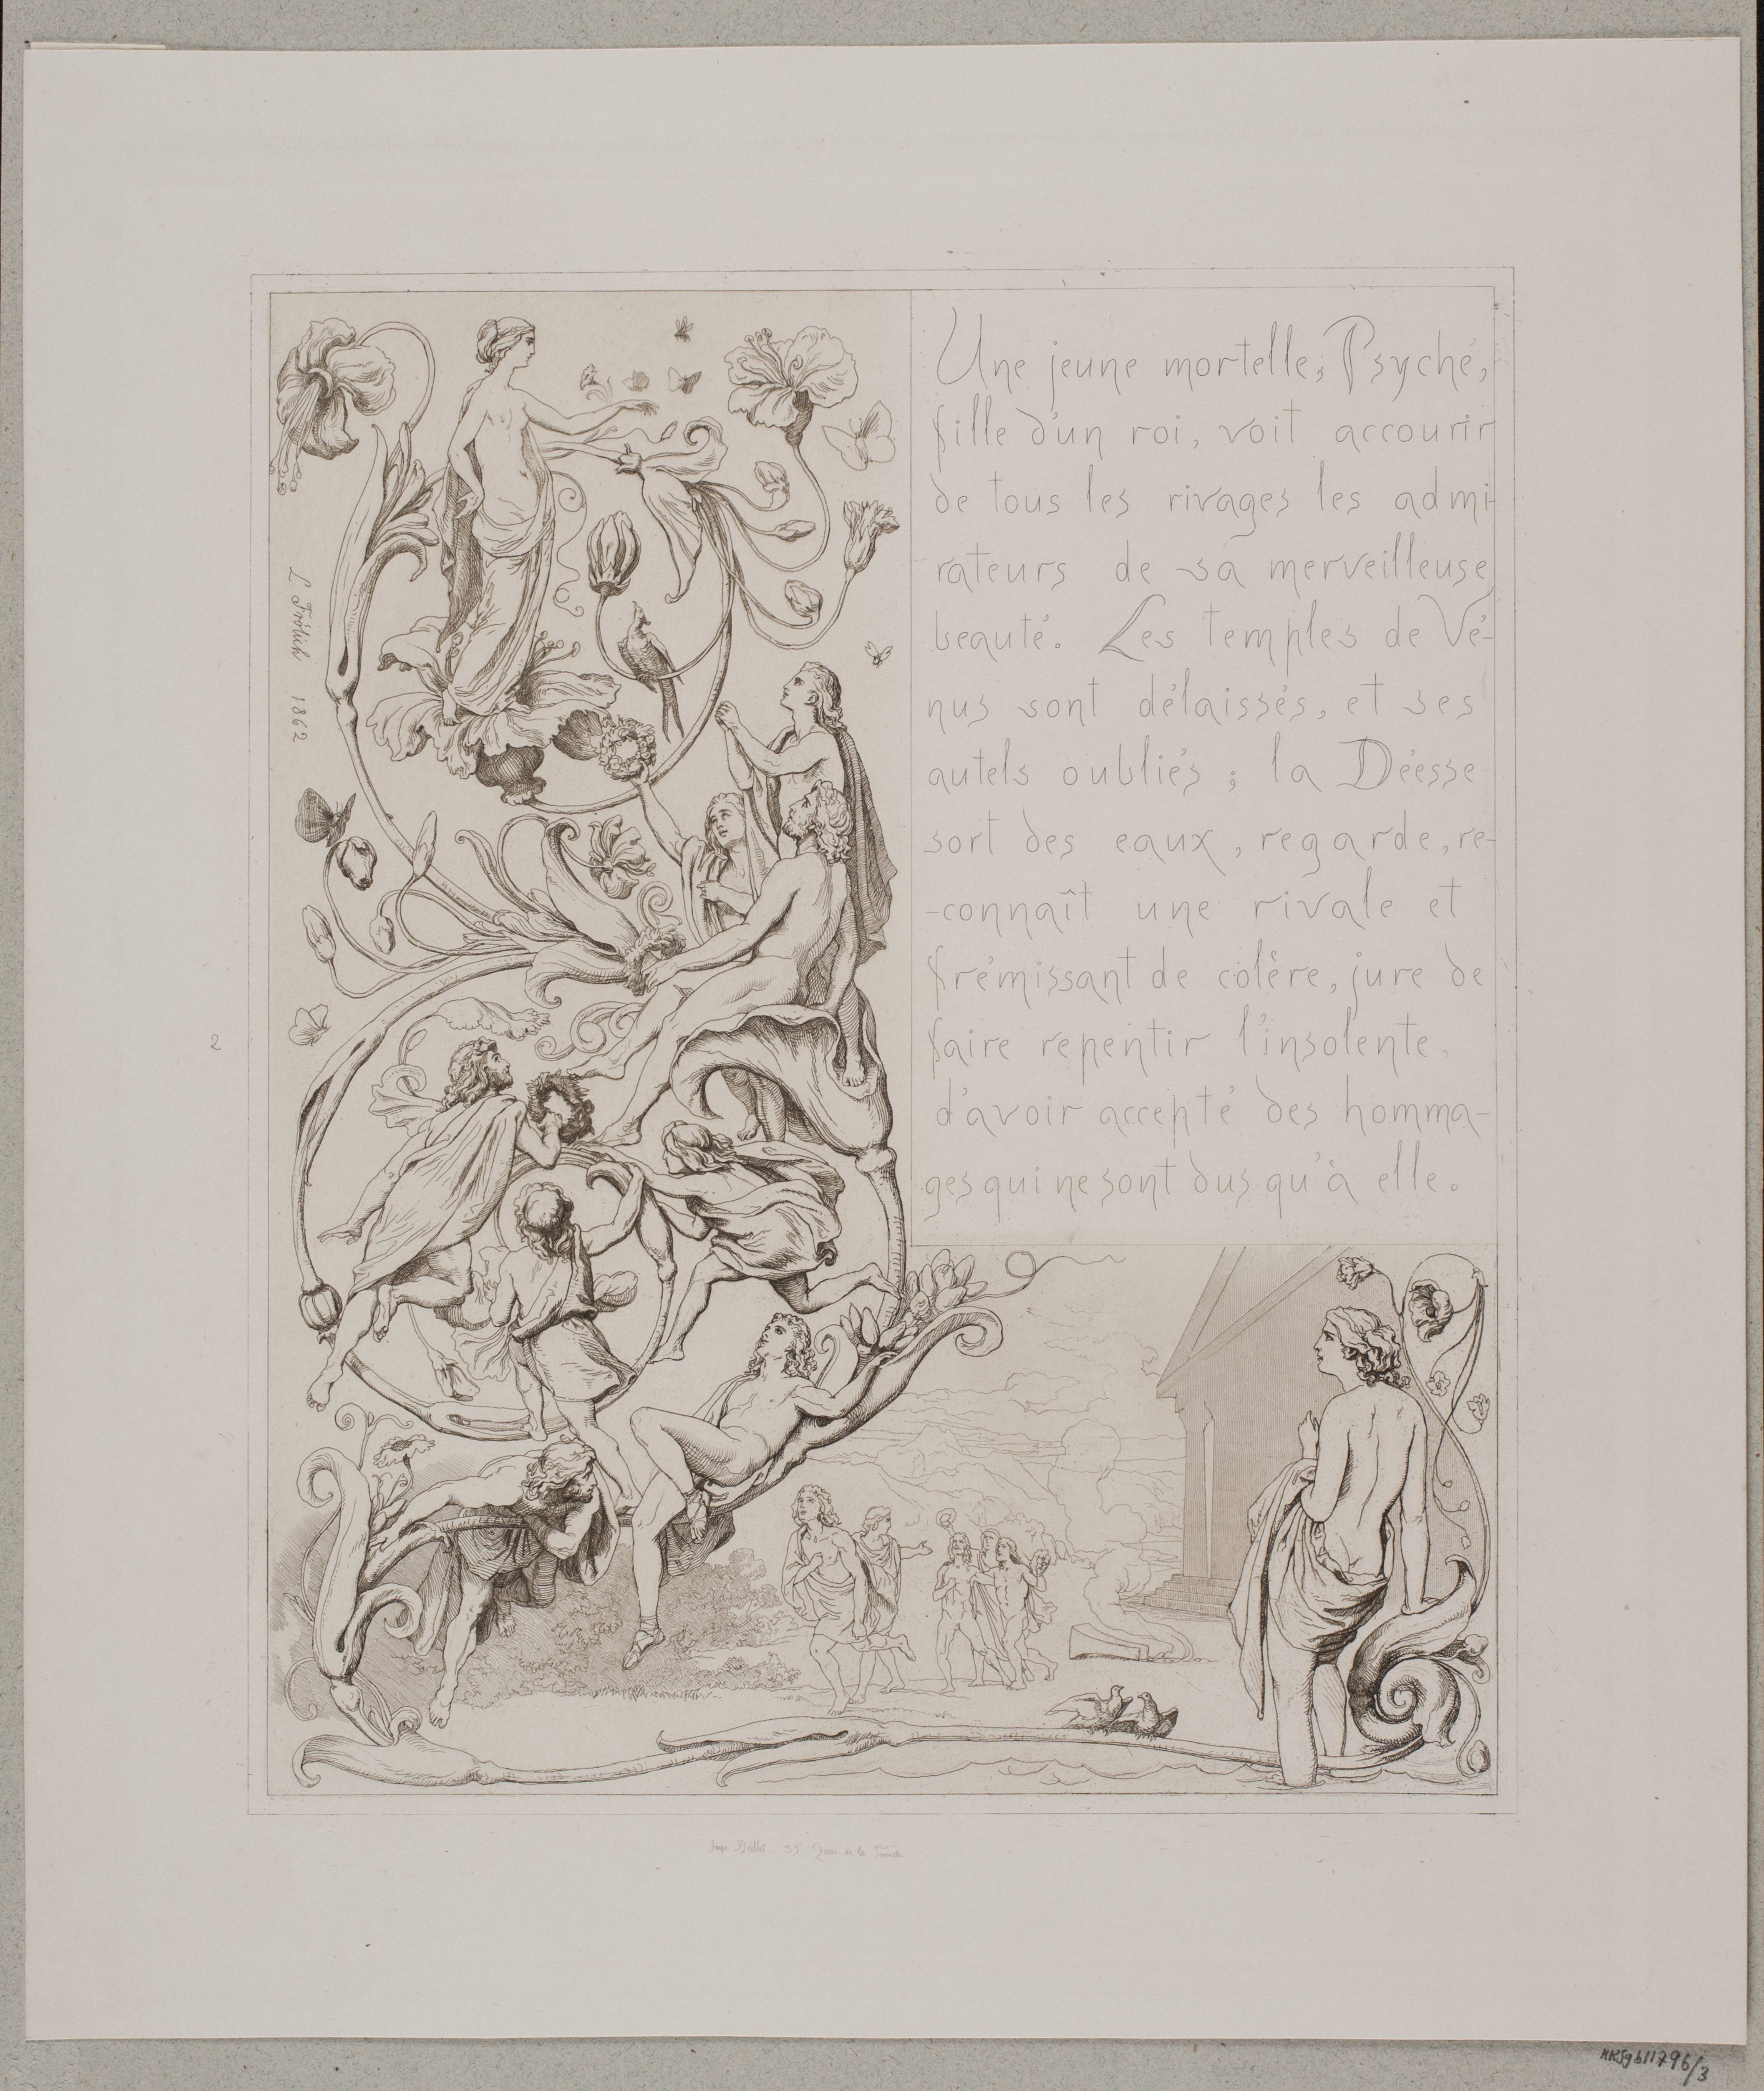 Une jeune mortelle, Psyché,
fille d'un roi, voit accourir
de tous les rivages les admi-
rateurs de sa merveilleuse
beauté. Les temples de Vé-
nus sont délaissés, et ses
autels oubliés ; la Déesse
sort des eaux, regarde, re-
-connaît une rivale et
frémissant de colère, jure de
faire repentir l'insolente
d'avoir accepté des homma-
ges qui ne sont dus qu'à elle.
L Frölich 1862
2
35 Quai de la
KKSgb11796/3